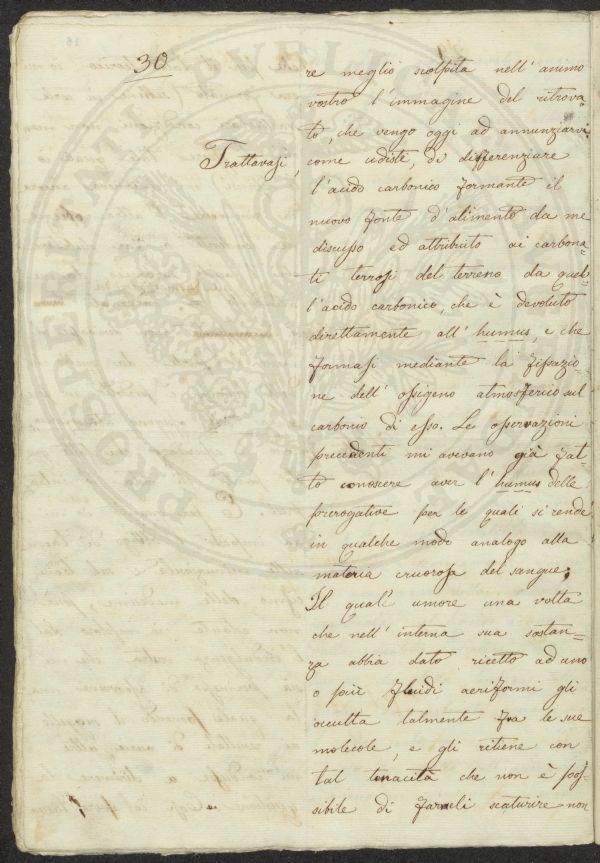 30
re meglio scolpita nell' animo
vostro l'immagine del ritrova=
to, che vengo oggi ad annunziarvi.
Trattavasi, come udiste, di differenziare
l'acido carbonico formante il
nuovo fonte d'alimento da me
discusso ed attribuito ai carbona=
ti terrosi del terreno da quel=
l'acido carbonico, che è devoluto
direttamente all' humus, e che
formasi mediante la fissazio=
ne dell' ossigeno atmosferico sul
carbonio di esso. Le osservazioni
precedenti mi avevano già fat=
to conoscere aver l' humus delle
prerogative per le quali si rende
in qualche modo analogo alla
materia cruorosa del sangue;
Il qual' umore una volta
che nell' interna sua sostan=
za abbia dato ricetto ad uno
o più fluidi aeriformi gli
occulta talmente fra le sue
molecole, e gli ritiene con
tal tenacità che non è pos=
sibile di farneli scaturire non